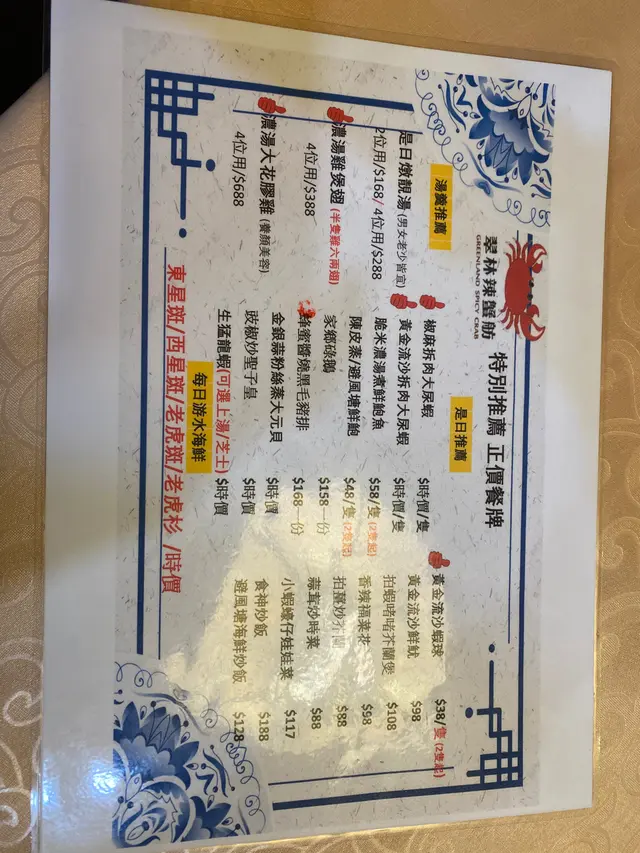 翠林辣蟹舫 特別推薦 正價餐牌
GREENLAND SPICY CRAB
湯羹推薦
是日燉靚湯(男女老少皆宜)
2位用/$168/ 4位用/$288
濃湯雞煲翅 (半隻雞六兩翅)
4位用/$388
濃湯大花膠雞 (養顏美容)
4位用/$688
是日推薦
椒麻拆肉大尿蝦 $時價/隻
黃金流沙拆肉大尿蝦 $時價/隻
脆米濃湯煮鮮鮑魚 $58/隻 (2隻起)
陳皮蒸/避風塘鮮鮑 $48/隻 (2隻起)
家鄉碌鵝 $158一份
蜂蜜醬燒黑毛豬排 $168一份
金銀蒜粉絲蒸大元貝 $時價
豉椒炒聖子皇 $時價
生猛龍蝦(可選上湯/芝士) $時價
黃金流沙蝦球 $38/隻 (2隻起)
黃金流沙鮮魷 $98
拍蝦啫啫芥蘭煲 $108
香辣福菜花 $98
拍薑炒芥蘭 $88
蒜茸炒時菜 $88
小蝦蠔仔娃娃菜 $117
食神炒飯 $188
避風塘海鮮炒飯 $128
每日游水海鮮
東星斑/西星斑/老虎斑/老虎杉 /時價